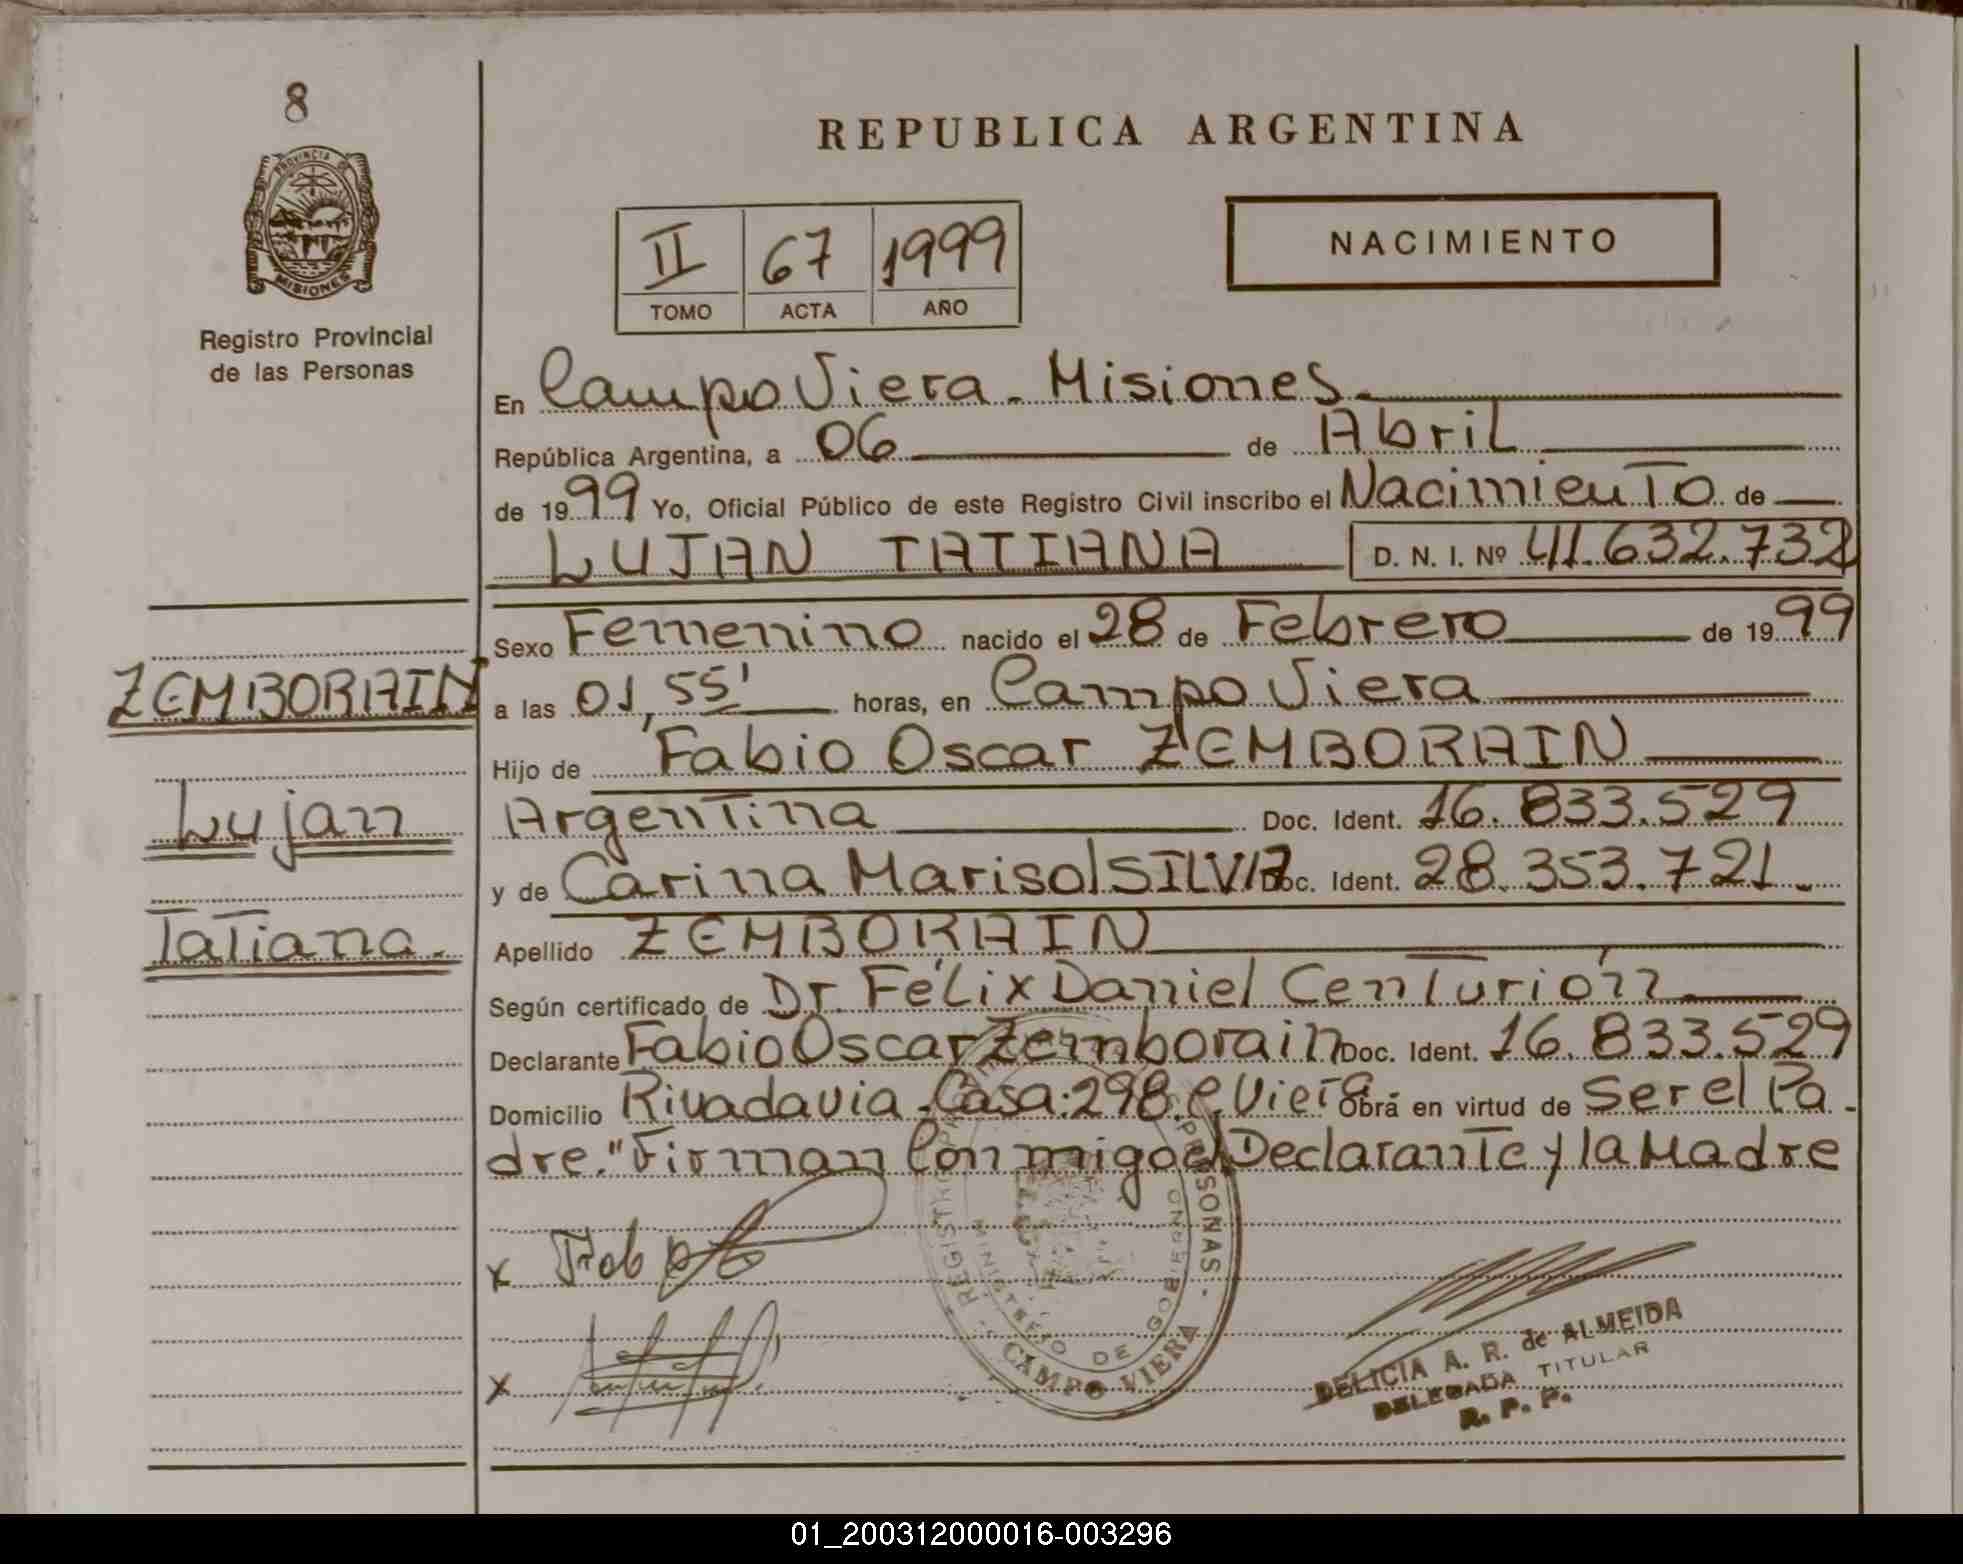 8
PROVINCIA DE
MISIONES
Registro Provincial
de las Personas
REPUBLICA ARGENTINA
II 67 1999
TOMO ACTA AÑO
NACIMIENTO
En Campo Viera - Misiones.
República Argentina, a 06 de Abril
de 1999 Yo, Oficial Público de este Registro Civil inscribo el Nacimiento de
LUJAN TATIANA D. N. I. Nº 41.632.732
Sexo Femenino nacido el 28 de Febrero de 1999
ZEMBORAIN
a las 01,55' horas, en Campo Viera
Hijo de Fabio Oscar ZEMBORAIN
Lujan
Argentina Doc. Ident. 16.833.529
y de Carina Marisol SILVA Doc. Ident. 28.353.721.
Tatiana.
Apellido ZEMBORAIN
Según certificado de Dr. Félix Daniel Centurión
Declarante Fabio Oscar Zemborain Doc. Ident. 16.833.529
Domicilio Rivadavia - Casa: 298. C. Viera Obra en virtud de Ser el Pa-
dre." Firman Conmigo el Declarante y la Madre
x
x
REGISTRO PERSONAS
MINISTERIO DE GOBIERNO
CAMPO VIERA
DELICIA A. R. de ALMEIDA
DELEGADA TITULAR
R. P. P.
01_200312000016-003296